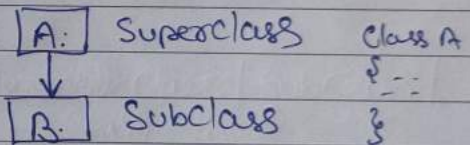 A. Superclass Class A
{ - - :
B. Subclass }